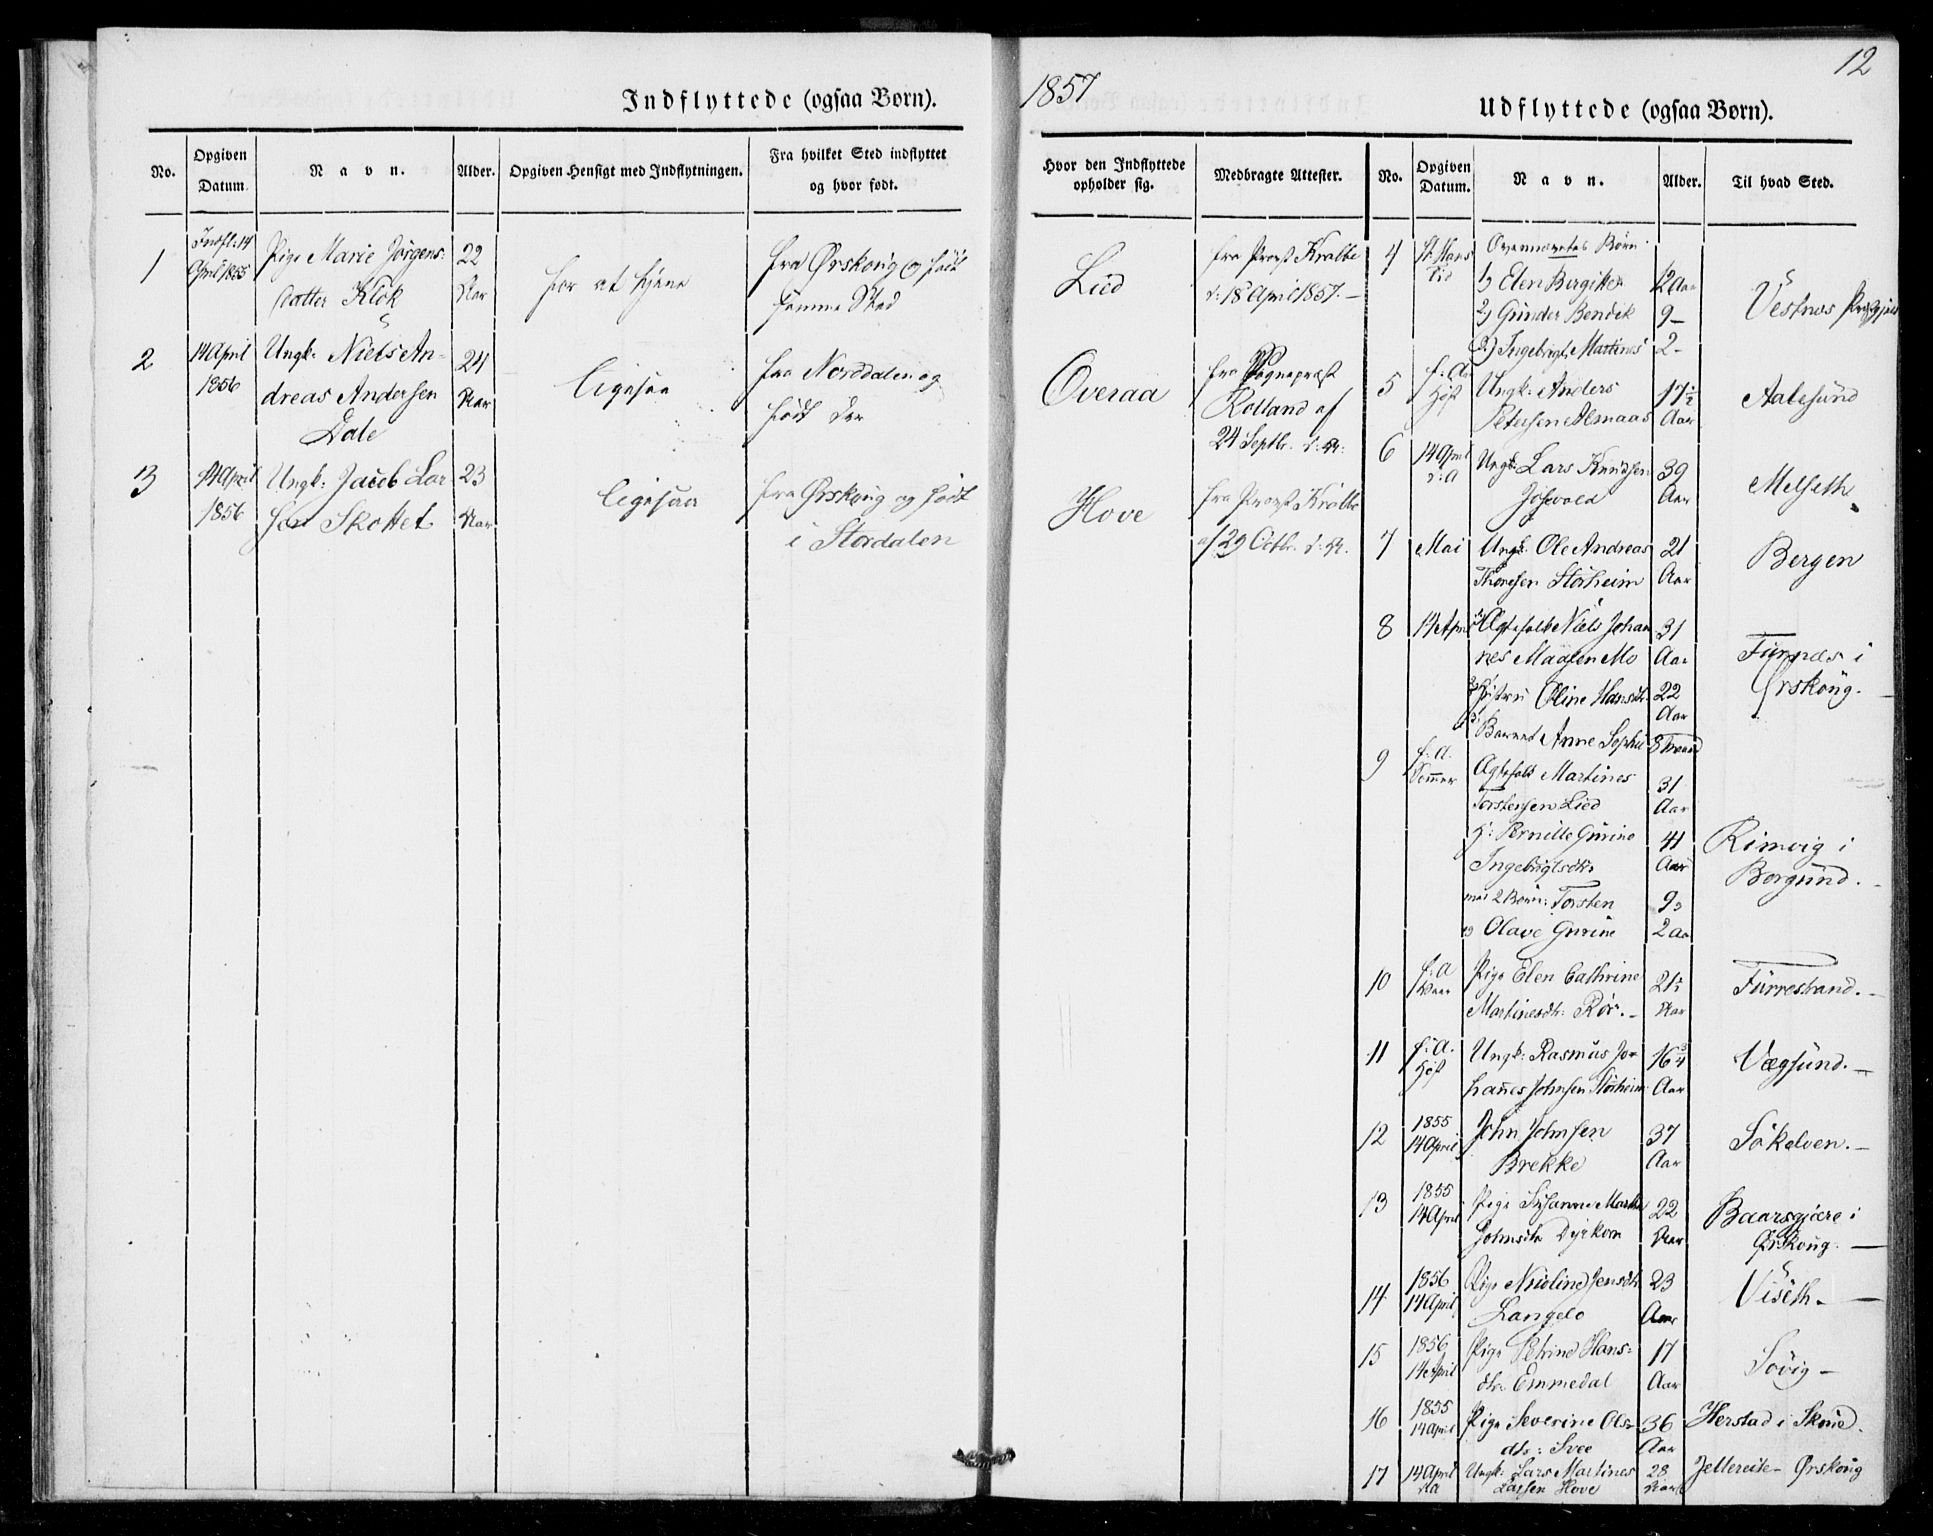 12
1857
Indflyttede (ogsaa Børn).
No.
Opgiven Datum.
Navn.
Alder.
Opgiven Hensigt med Indflytningen.
Fra hvilket Sted indflyttet og hvor født.
Hvor den Indflyttede opholder sig.
Medbragte Attester.
1
Indfl. 14 April 1855
Pige Marie Jørgens-
datter Klok
22 Aar
for at tjene
fra Ørskoug og født
samme Sted
Lied
fra Provst Krabbe
d: 18 April 1857.
2
14 April 1856
Ungk: Niels An-
dreas Andersen
Dale
24 Aar
ligesaa
fra Norddalen og
født der
Overaa
fra Sognepræst
Rolland af
24 Septbr. d: A:
3
14 April 1856
Ungk: Jacob Lar
sen Skottet
23 Aar
ligesaa
fra Ørskoug og født
i Stordalen
Hove
fra Provst Krabbe
af 29 Octbr. d: A:
Udflyttede (ogsaa Børn).
No.
Opgiven Datum.
Navn.
Alder.
Til hvad Sted.
4
St. Hans Tid
Ovennævntes Børn
1) Elen Bergitte
12 Aar
2) Gunder Bendik
9 -
3) Ingebrigt Martinus
2 -
Vestnæs
5
f: A: Høst
Ungk: Anders
Petersen Almaas
17½ Aar
Aalesund
6
14 April d: A
Ungk: Lars Knudsen
39 Aar
Melseth
7
Mai
Ungk. Ole Andreas
Thoresen Storheim
21 Aar
Bergen
8
14 April
Ægtefolk Niels Johan
nes Madsen Mo
31 Aar
Hustru Oline Hansdr.
22 Aar
Barnet Anne Sophie
Furnæs i
Ørskoug.
9
f: A. Sommer
Ægtefolk Martines
Torstensen Lied
31 Aar
H: Pernille Gurine
Ingebrigtsdtr
41 Aar
med 2 Børn: Torsten
9
og Olave Gurine
2 Aar
Rimvig i
Borgund.
10
f: A Vaar
Pige Elen Cathrine
Martinesdtr: Rør.
21½ Aar
Furrestrand.
11
f: A. Høst
Ungk: Rasmus Jo-
hannes Johnsen Storheim
16¾ Aar
Vægsund.
12
1855 14 April
John Johnsen
Brekke
37 Aar
Søkelven.
13
1855 14 April
Pige Susanne Marthe
Johnsdtr Dyrkorn
22 Aar
Baarsgjære i
Ørskoug.
14
1856 14 April
Pige Nicoline Jensdtr
Langelo
23 Aar
Viseth.
15
1856 14 April
Pige Petrine Hans-
dtr Emmedal
17 Aar
Søvig
16
1855 14 April
Pige Severine Ols-
dtr: Svee
36 Aar
Herstad i
17
14 April
Ungk: Lars Martines
Larsen Hove
28 Aar
Jettereite Ørskoug